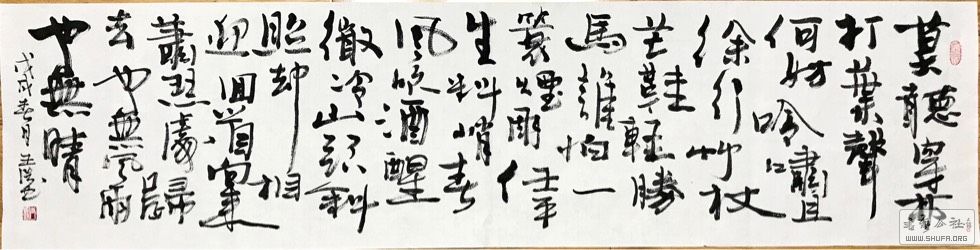 莫聽穿林
打葉聲
何妨吟嘯且
徐行竹杖
芒鞋輕勝
馬誰怕一
蓑煙雨任平
生料峭春
風吹酒醒
微冷山頭斜
照却相
迎回首向來
蕭瑟處歸
去也無風雨
也無晴
戊戌春月王書
書法公社
WWW.SHUFA.ORG